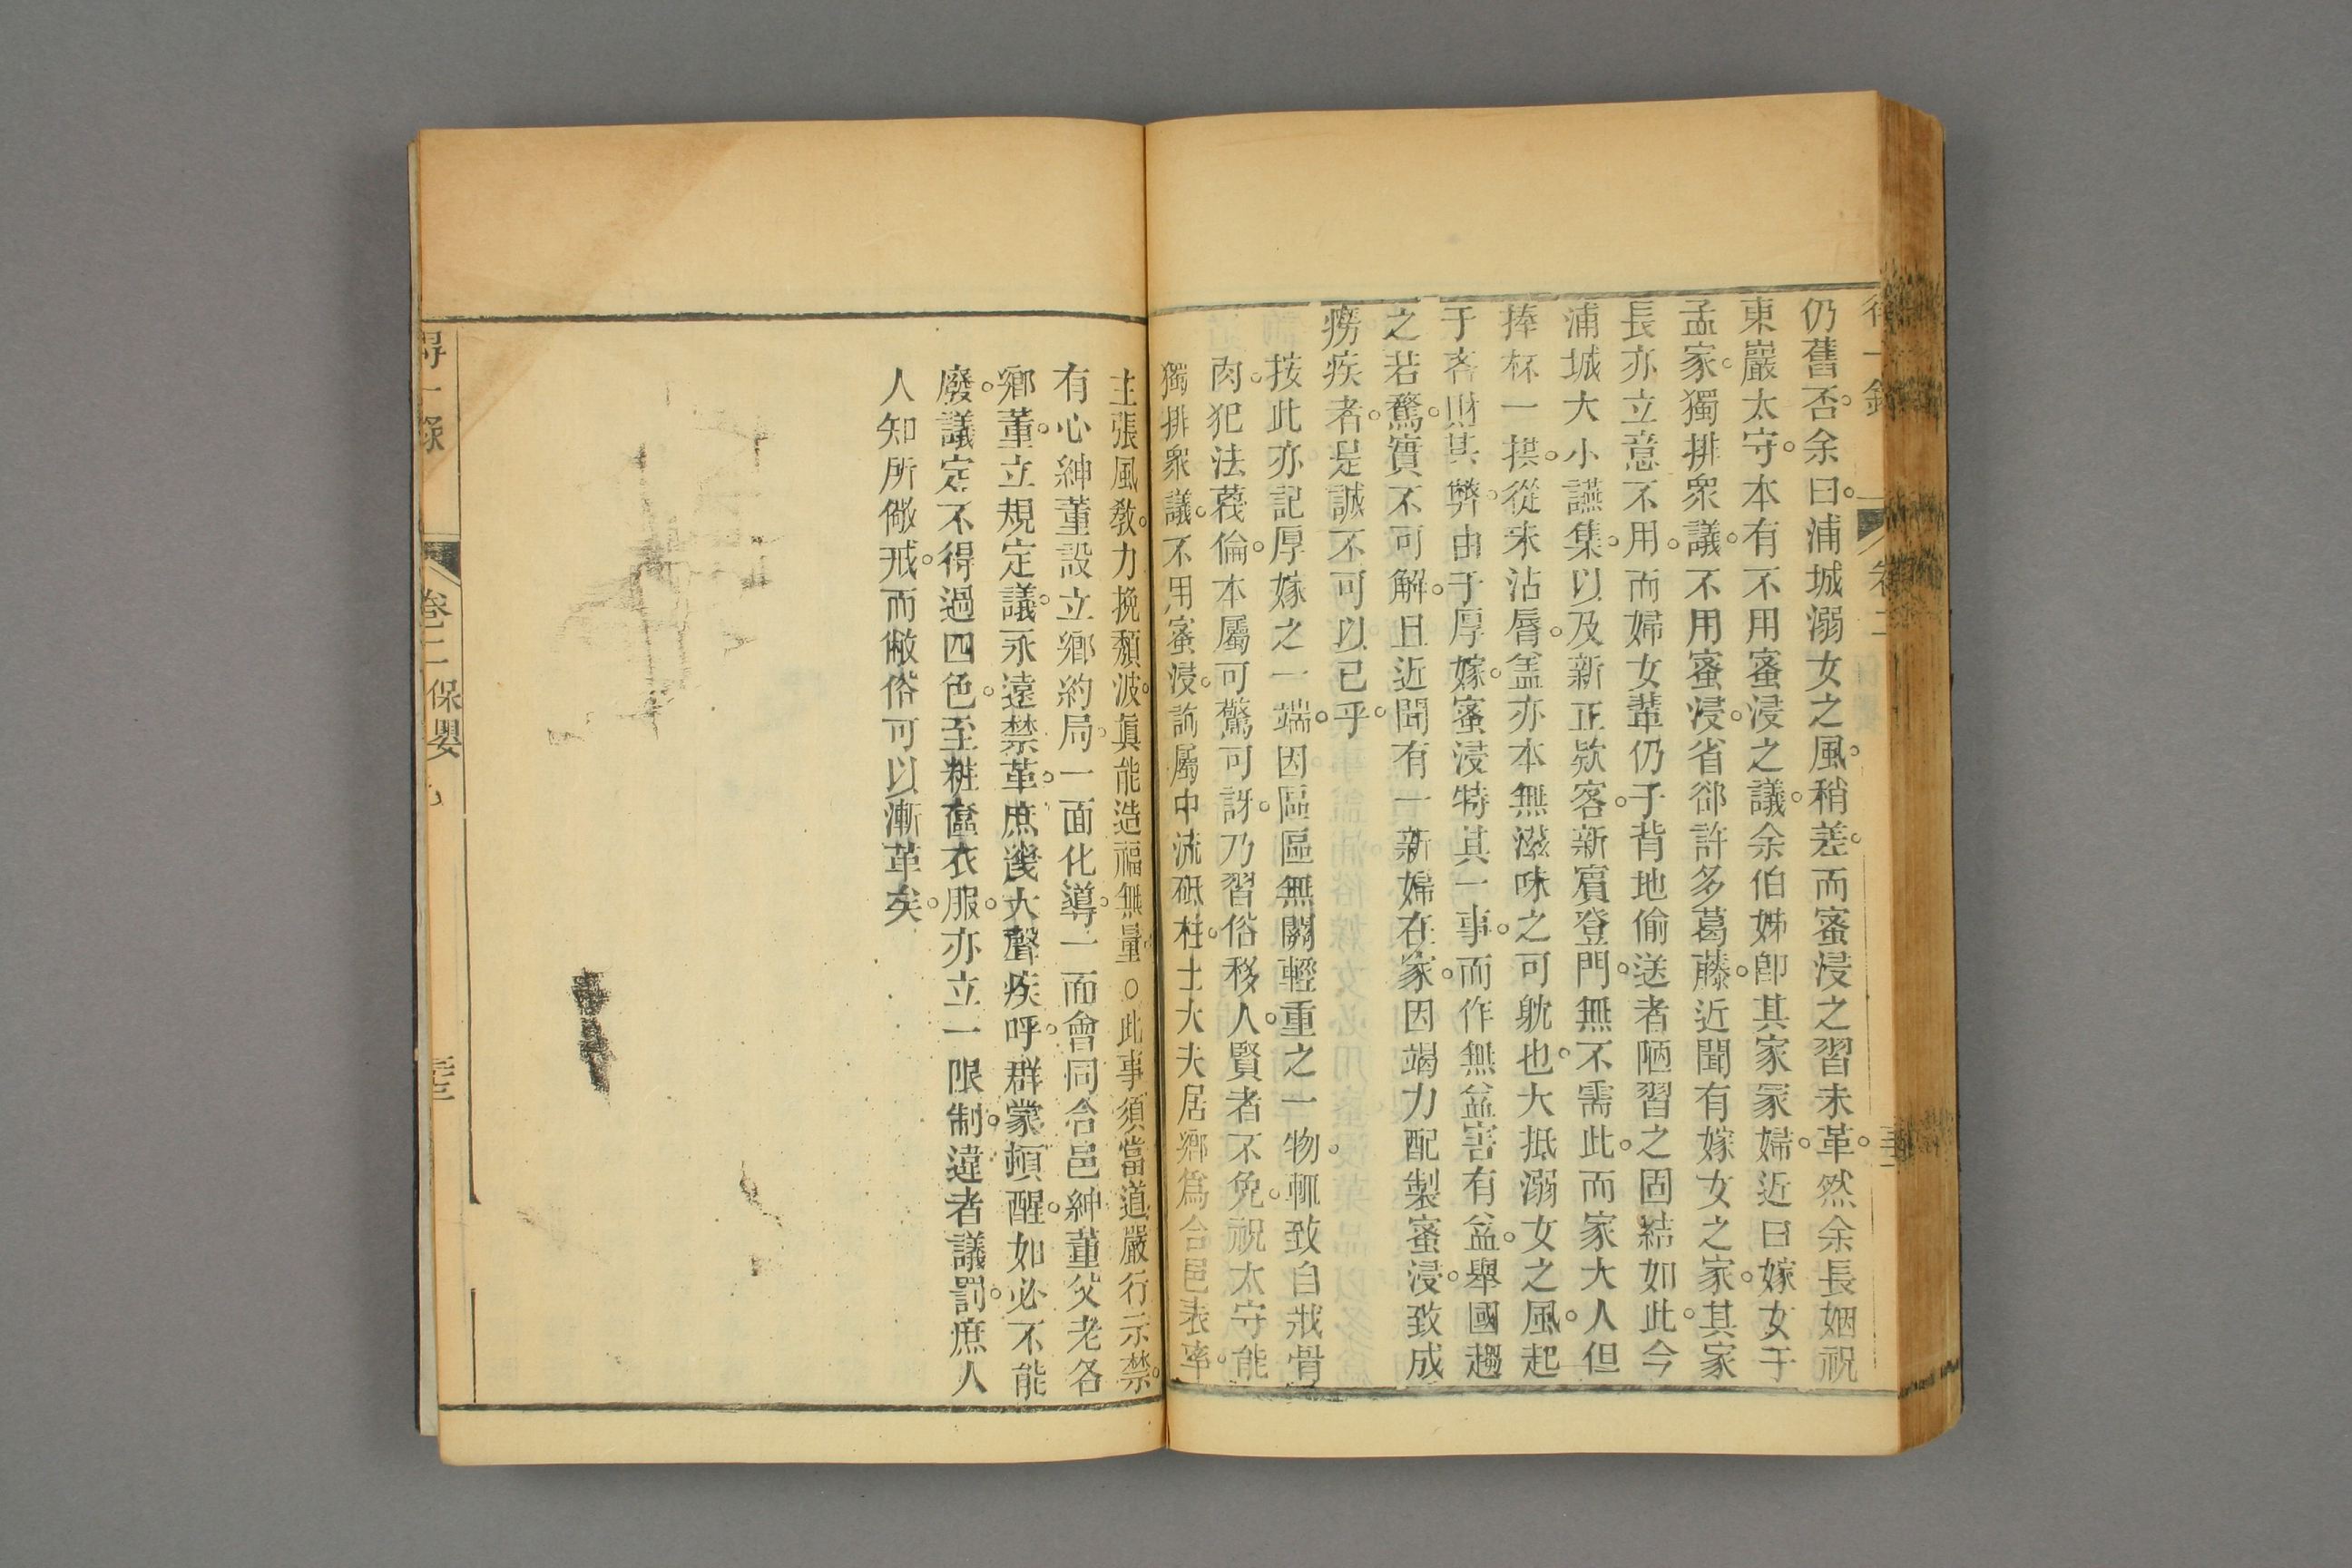 仍舊否。余曰。浦城溺女之風。稍差。而蜜浸之習未革。然余長姻祝
東巖太守。本有不用蜜浸之議。余伯姊卽其家冢婦。近日嫁女于
孟家。獨排衆議。不用蜜浸。省郤許多葛藤。近聞有嫁女之家。其家
長亦立意不用。而婦女輩仍于背地偷送者陋習之固結如此。今
浦城大小讌集。以及新正欵客。新賓登門。無不需此。而家大人但
捧杯一拱。從未沾唇。盖亦本無滋味之可躭也。大抵溺女之風。起
于吝財其弊。由于厚嫁。蜜浸特其一事。而作無益害有益。舉國趨
之若鶩。實不可解。且近聞有一新婦在家。因竭力配製蜜浸。致成
癆疾者。是誠不可以已乎。
按此亦記厚嫁之一端。因區區無關輕重之一物。輒致自戕骨
肉。犯法蔑倫。本屬可驚可訝。乃習俗移人。賢者不免。祝太守能
獨排衆議。不用蜜浸。詢屬中流砥柱。士大夫居鄉爲合邑表率。
主張風敎。力挽頹波。眞能造福無量。○此事須當道嚴行示禁。
有心紳董設立鄉約局。一面化導。一面會同合邑紳董父老各
鄉董。立規定議。永遠禁革。庶幾大聲疾呼。群蒙頓醒。如必不能
廢。議定不得過四色。至粧奩衣服。亦立一限制。違者議罰。庶人
人知所儆戒。而敝俗可以漸革矣。
得一錄
卷二
保嬰